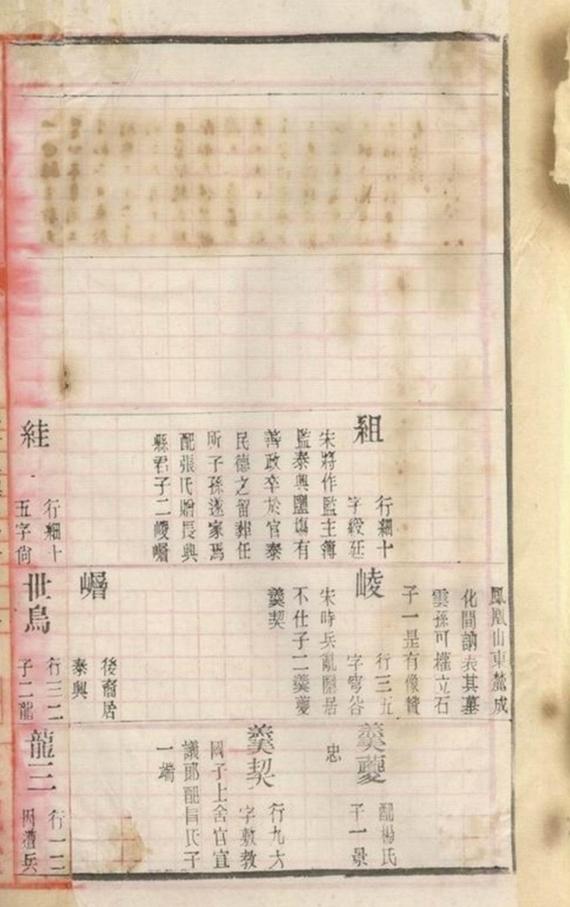 組
行細十
字綬廷
宋將作監主簿
監泰興鹽場有
善政卒於官泰
民德之留葬任
所子孫遂家焉
配張氏贈長興
縣君子二崚嵋
絓
行細十
五字尙
鳳凰山東麓成
化間訥表其墓
雲孫可權立石
子一是有像贊
崚
行三五
字穹谷
宋時兵亂隱居
不仕子二羹夔
羹契
嵋
後裔居
泰興
世鳥
行三二
子二龍
羹夔
配楊氏
子一景
忠
羹契
行九六
字敷敎
國子上舍官宣
議郎配昌氏子
一端
龍三
行一三
因遭兵